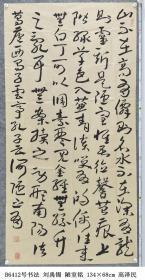 山不在高有僊則名水不在深有龍
則靈斯是陋室惟吾德馨苔痕上
階綠草色入簾青談笑有鴻儒往來
無白丁可以調素琴閱金經無絲竹
之亂耳無案牘之勞形南陽諸
葛廬西蜀子雲亭孔子云何陋之有
B6412号书法 刘禹锡 陋室铭 134×68cm 高泽民